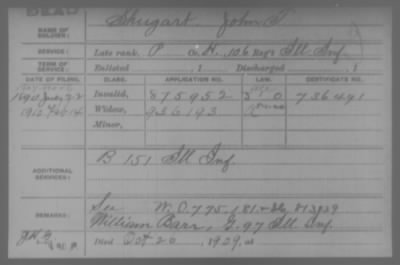 DEAD
NAME OF SOLDIER: Shugart, John T.
SERVICE: Late rank, P Co. H, 106 Reg't Ill Inf.
TERM OF SERVICE: Enlisted , 1 Discharged , 1
DATE OF FILING. CLASS. APPLICATION NO. LAW. CERTIFICATE NO.
1890 22 Invalid, 875952 736491
1910 Feb 14 Widow, 936193
Minor,
ADDITIONAL SERVICES: B 151 Ill Inf.
REMARKS: See W.O. 775.181
William Barr, G. 97 Ill. Inf.
Died Oct 20, 1909, at